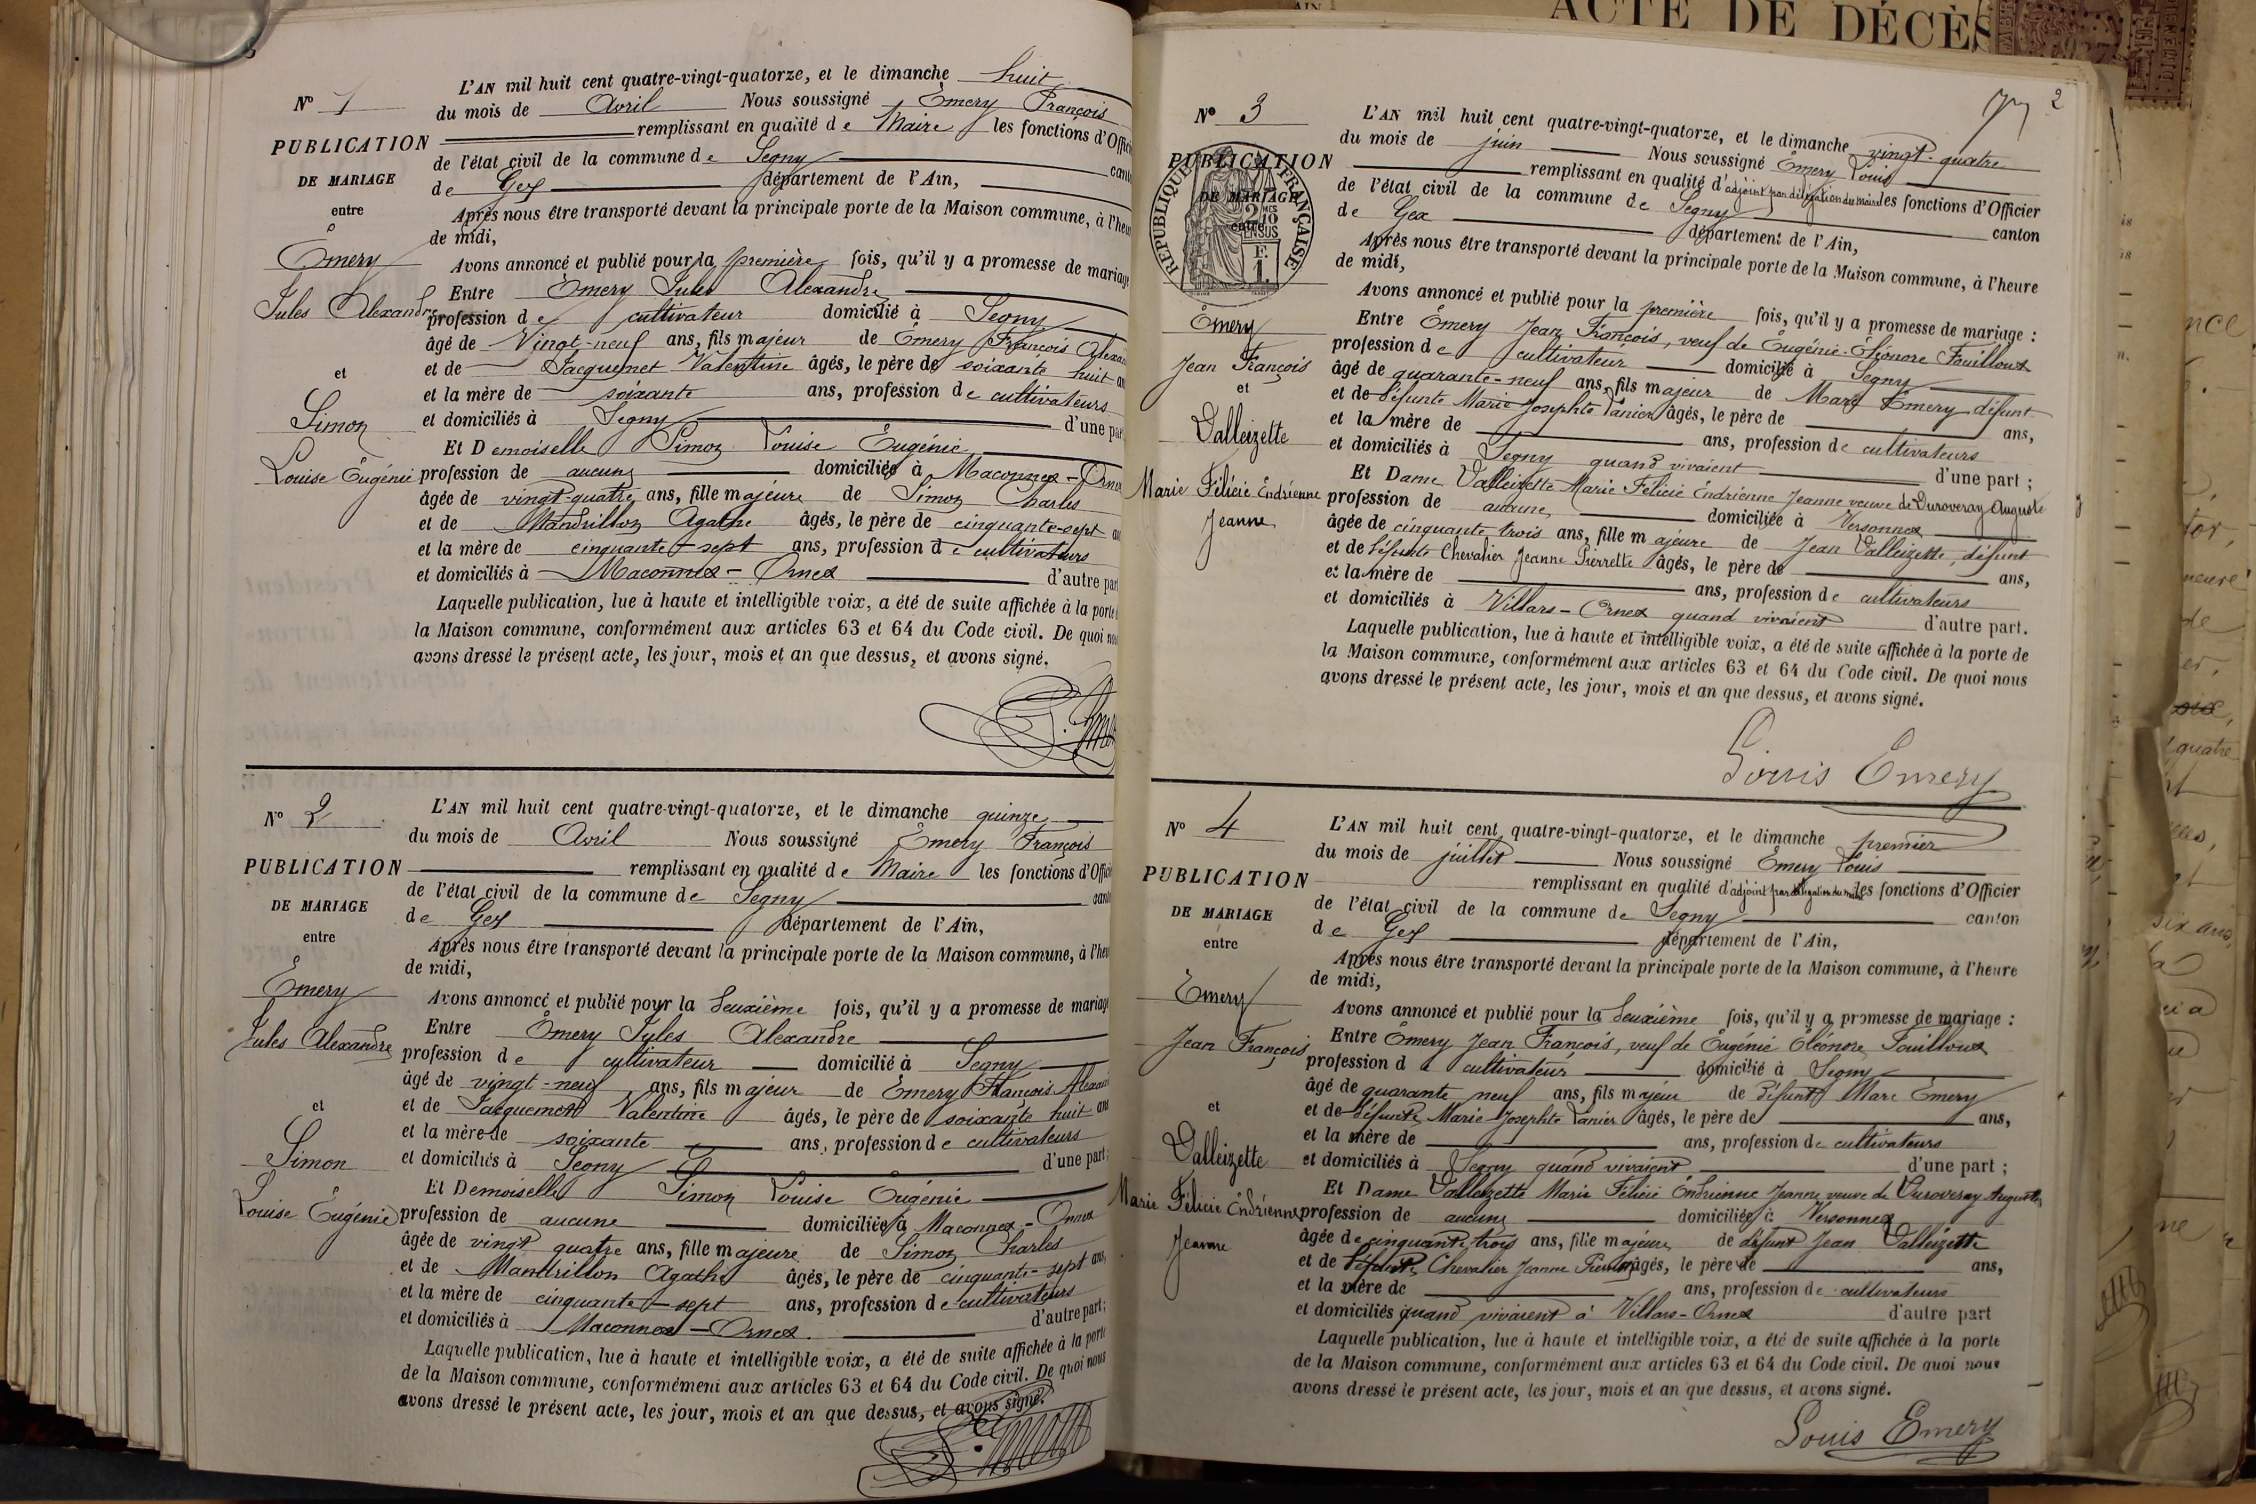 N° 1
PUBLICATION
DE MARIAGE
entre
Émery
Jules Alexandre
et
Simon
Louise Eugénie
L'AN mil huit cent quatre-vingt-quatorze, et le dimanche huit
du mois de Avril Nous soussigné Émery François
remplissant en qualité de Maire les fonctions d'Offici
de l'état civil de la commune de Segny cant
de Gex département de l'Ain,
Après nous être transporté devant la principale porte de la Maison commune, à l'heu
de midi,
Avons annoncé et publié pour la première fois, qu'il y a promesse de mariage
Entre Émery Jules Alexandre
profession de cultivateur domicilié à Segny
âgé de Vingt-neuf ans, fils majeur de Émery François Alexan
et de Jacquemet Valentine âgés, le père de soixante huit an
et la mère de soixante ans, profession de cultivateurs
et domiciliés à Segny d'une par
Et Demoiselle Simon Louise Eugénie
profession de aucune domiciliée à Maconnex - Ornex
âgée de vingt-quatre ans, fille majeure de Simon Charles
et de Mandrillon Agathe âgés, le père de cinquante-sept an
et la mère de cinquante-sept ans, profession de cultivateurs
et domiciliés à Maconnex - Ornex d'autre part
Laquelle publication, lue à haute et intelligible voix, a été de suite affichée à la porte d
la Maison commune, conformément aux articles 63 et 64 du Code civil. De quoi nou
avons dressé le présent acte, les jour, mois et an que dessus, et avons signé.
N° 2
PUBLICATION
DE MARIAGE
entre
Émery
Jules Alexandre
et
Simon
Louise Eugénie
L'AN mil huit cent quatre-vingt-quatorze, et le dimanche quinze
du mois de Avril Nous soussigné Émery François
remplissant en qualité de Maire les fonctions d'Offici
de l'état civil de la commune de Segny cant
de Gex département de l'Ain,
Après nous être transporté devant la principale porte de la Maison commune, à l'heu
de midi,
Avons annoncé et publié pour la deuxième fois, qu'il y a promesse de mariage
Entre Émery Jules Alexandre
profession de cultivateur domicilié à Segny
âgé de vingt-neuf ans, fils majeur de Émery François Alexan
et de Jacquemet Valentine âgés, le père de soixante huit ans
et la mère de soixante ans, profession de cultivateurs
et domiciliés à Segny d'une part;
Et Demoiselle Simon Louise Eugénie
profession de aucune domiciliée à Maconnex - Ornex
âgée de vingt quatre ans, fille majeure de Simon Charles
et de Mandrillon Agathe âgés, le père de cinquante-sept ans,
et la mère de cinquante-sept ans, profession de cultivateurs
et domiciliés à Maconnex - Ornex. d'autre part;
Laquelle publication, lue à haute et intelligible voix, a été de suite affichée à la porte
de la Maison commune, conformément aux articles 63 et 64 du Code civil. De quoi nous
avons dressé le présent acte, les jour, mois et an que dessus, et avons signé.
ACTE DE DÉCÈS
2
N° 3
PUBLICATION
DE MARIAGE
entre
RÉPUBLIQUE FRANÇAISE
Émery
Jean François
et
Valleizette
Marie Félicie Endrienne
Jeanne
L'AN mil huit cent quatre-vingt-quatorze, et le dimanche vingt-quatre
du mois de juin Nous soussigné Émery Louis
remplissant en qualité d'adjoint par délégation du maire les fonctions d'Officier
de l'état civil de la commune de Segny canton
de Gex département de l'Ain,
Après nous être transporté devant la principale porte de la Maison commune, à l'heure
de midi,
Avons annoncé et publié pour la première fois, qu'il y a promesse de mariage :
Entre Émery Jean François, veuf de Eugénie-Eléonore Fouilloux
profession de cultivateur domicilié à Segny
âgé de quarante-neuf ans, fils majeur de Marc Émery défunt
et de défunte Marie Josephte Panier âgés, le père de ans,
et la mère de ans, profession de cultivateurs
et domiciliés à Segny quand vivaient d'une part ;
Et Dame Valleizette Marie Félicie Endrienne Jeanne veuve de Duroveray Auguste
profession de aucune domiciliée à Versonnex
âgée de cinquante trois ans, fille majeure de Jean Valleizette, défunt
et de défunte Chevalier Jeanne Pierrette âgés, le père de ans,
et la mère de ans, profession de cultivateurs
et domiciliés à Villars-Ornex quand vivaient d'autre part.
Laquelle publication, lue à haute et intelligible voix, a été de suite affichée à la porte de
la Maison commune, conformément aux articles 63 et 64 du Code civil. De quoi nous
avons dressé le présent acte, les jour, mois et an que dessus, et avons signé.
Louis Emery
N° 4
PUBLICATION
DE MARIAGE
entre
Émery
Jean François
et
Valleizette
Marie Félicie Endrienne
Jeanne
L'AN mil huit cent quatre-vingt-quatorze, et le dimanche premier
du mois de juillet Nous soussigné Émery Louis
remplissant en qualité d'adjoint par délégation du maire les fonctions d'Officier
de l'état civil de la commune de Segny canton
de Gex département de l'Ain,
Après nous être transporté devant la principale porte de la Maison commune, à l'heure
de midi,
Avons annoncé et publié pour la deuxième fois, qu'il y a promesse de mariage :
Entre Émery Jean François, veuf de Eugénie Eléonore Fouilloux
profession de cultivateur domicilié à Segny
âgé de quarante neuf ans, fils majeur de défunt Marc Émery
et de défunte Marie Josephte Panier âgés, le père de ans,
et la mère de ans, profession de cultivateurs
et domiciliés à Segny quand vivaient d'une part ;
Et Dame Valleizette Marie Félicie Endrienne Jeanne veuve de Duroveray Auguste
profession de aucune domiciliée à Versonnex
âgée de cinquante trois ans, fille majeure de défunt Jean Valleizette
et de défunte Chevalier Jeanne Pierrette âgés, le père de ans,
et la mère de ans, profession de cultivateurs
et domiciliés quand vivaient à Villars-Ornex d'autre part
Laquelle publication, lue à haute et intelligible voix, a été de suite affichée à la porte
de la Maison commune, conformément aux articles 63 et 64 du Code civil. De quoi nous
avons dressé le présent acte, les jour, mois et an que dessus, et avons signé.
Louis Emery